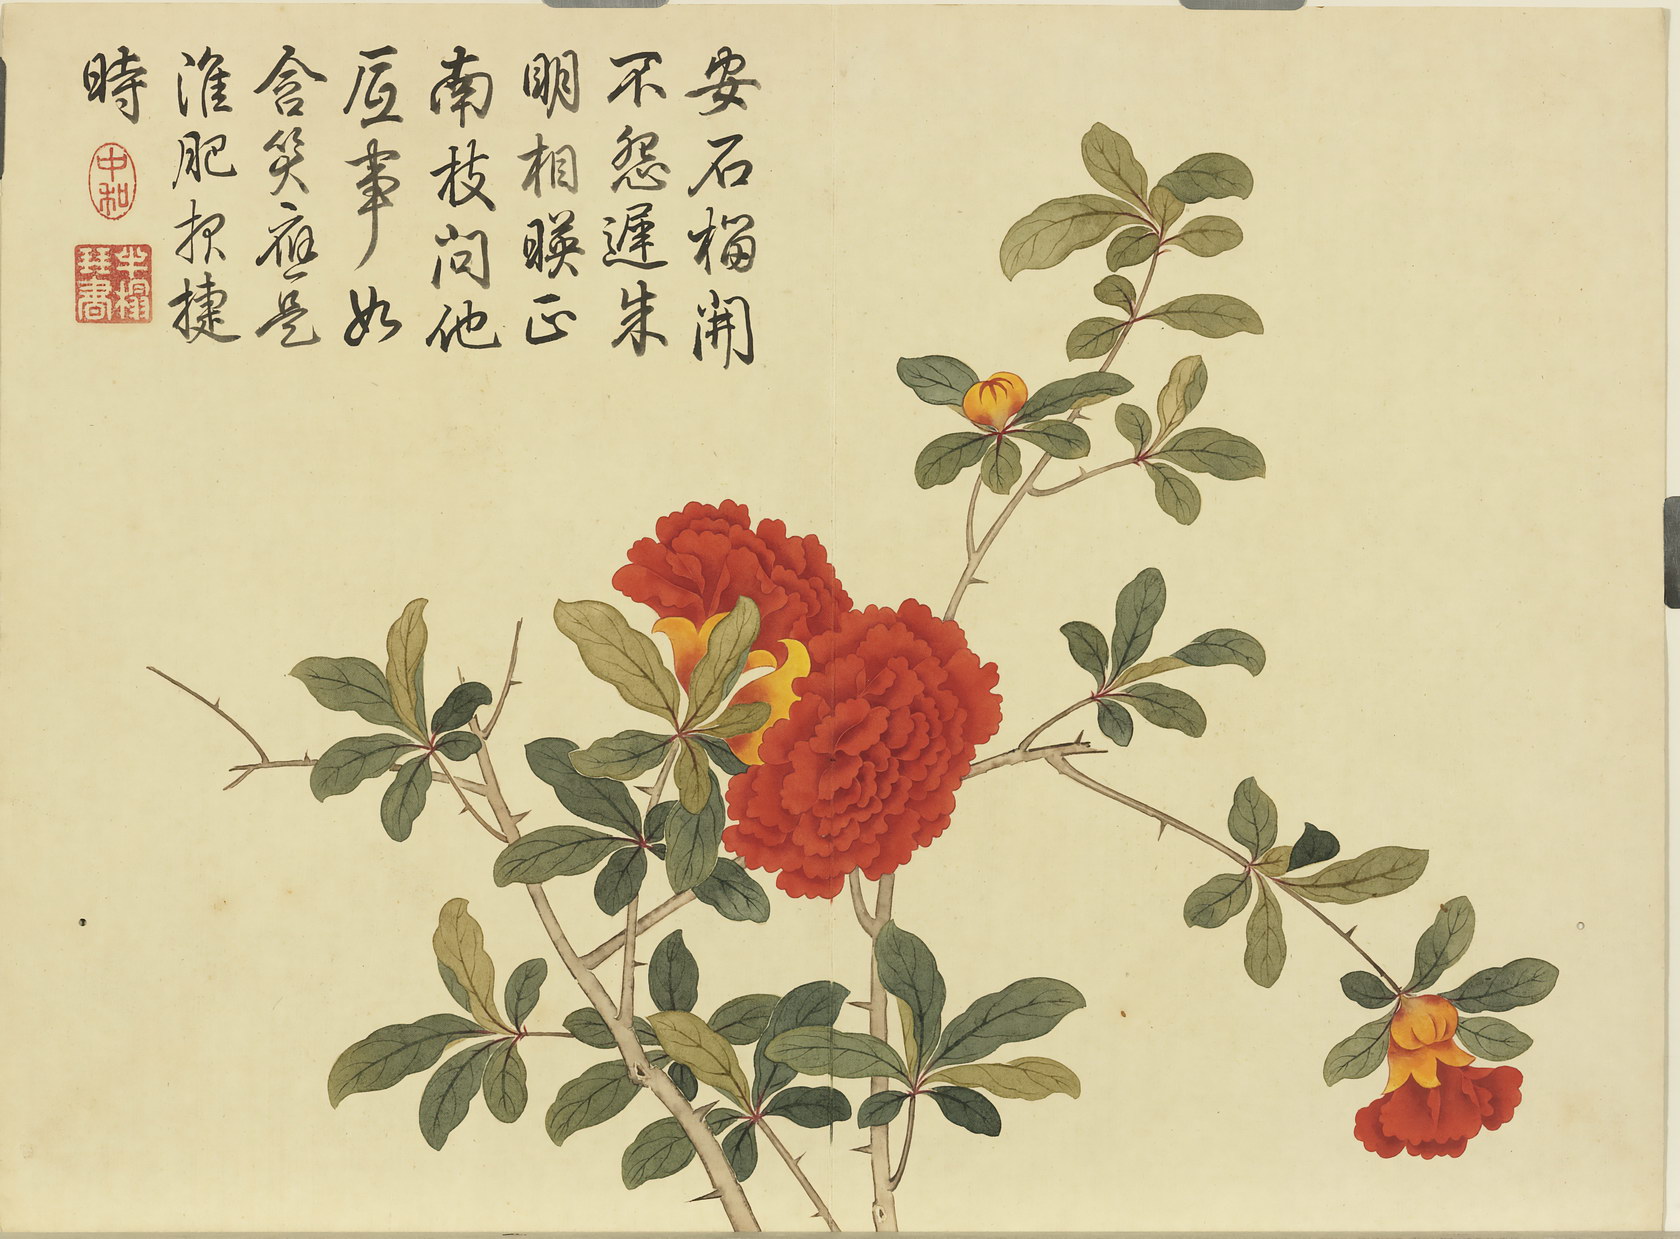 安石榴開
不怨遲朱
明相暎正
南枝問他
底事如
含笑應是
淮肥報捷
時
中和
半榻琴書